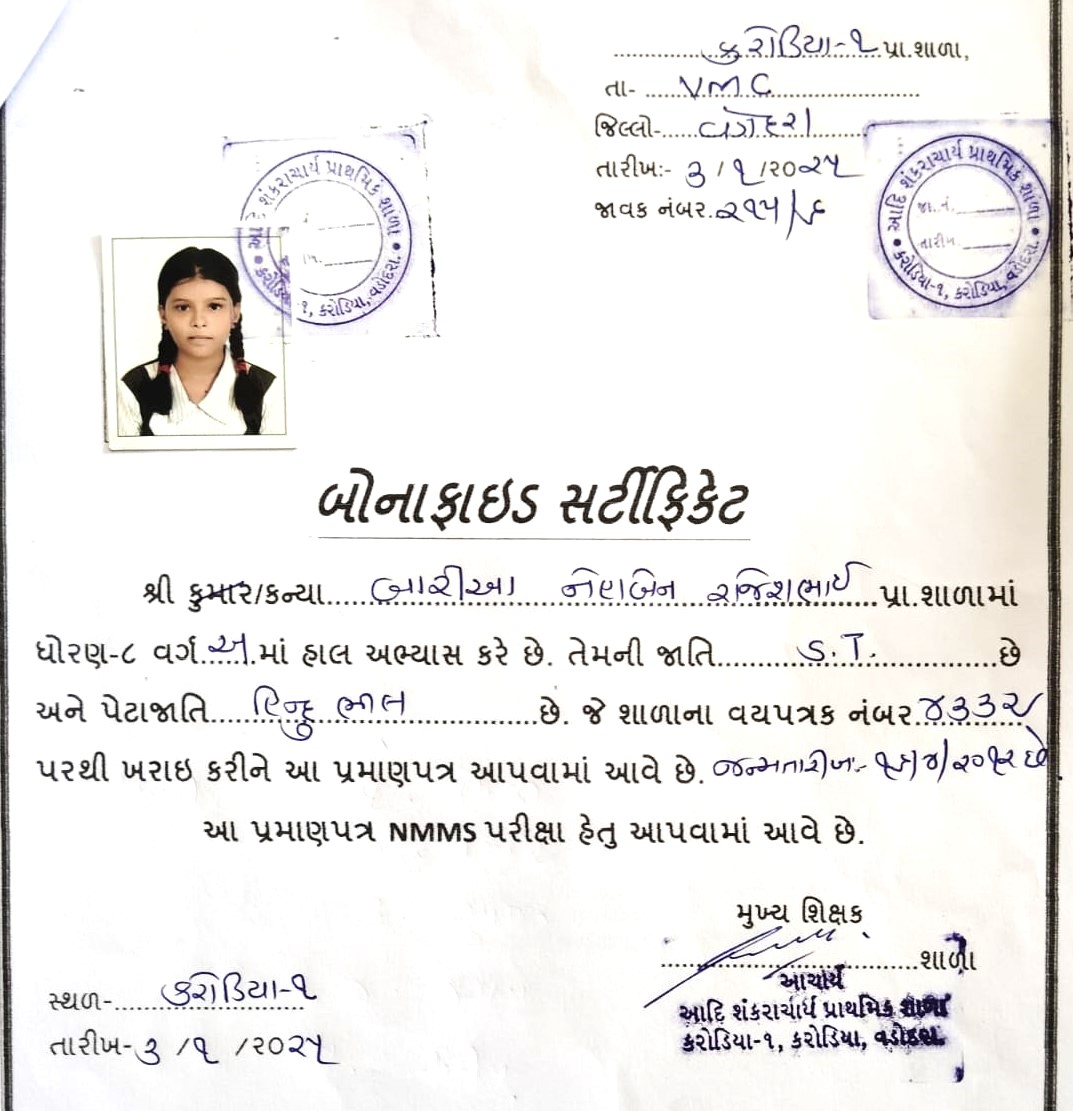 કરોડિયા-૧ પ્રા.શાળા,
તા- VMC
જિલ્લો- વડોદરા
તારીખ:- ૩/૧/૨૦૨૫
જાવક નંબર. ૨૧૫/૬
આદિ શંકરાચાર્ય પ્રાથમિક શાળા
જા. નં.
તારીખ.
કરોડિયા-૧, કરોડિયા, વડોદરા.
શંકરાચાર્ય પ્રાથમિક શાળા
-૧, કરોડિયા, વડોદરા.
બોનાફાઇડ સર્ટીફિકેટ
શ્રી કુમાર/કન્યા બારીઆ રાજેશભાઈ પ્રા.શાળામાં
ધોરણ-૮ વર્ગ અ માં હાલ અભ્યાસ કરે છે. તેમની જાતિ S.T. છે
અને પેટાજાતિ હિન્દુ ભીલ છે. જે શાળાના વયપત્રક નંબર ૪૩૩૨
પરથી ખરાઇ કરીને આ પ્રમાણપત્ર આપવામાં આવે છે. જન્મતારીખ:- છે
આ પ્રમાણપત્ર NMMS પરીક્ષા હેતુ આપવામાં આવે છે.
મુખ્ય શિક્ષક
શાળા
આચાર્ય
આદિ શંકરાચાર્ય પ્રાથમિક શાળા
કરોડિયા-૧, કરોડિયા, વડોદરા.
સ્થળ- કરોડિયા-૧
તારીખ- ૩/૧/૨૦૨૫